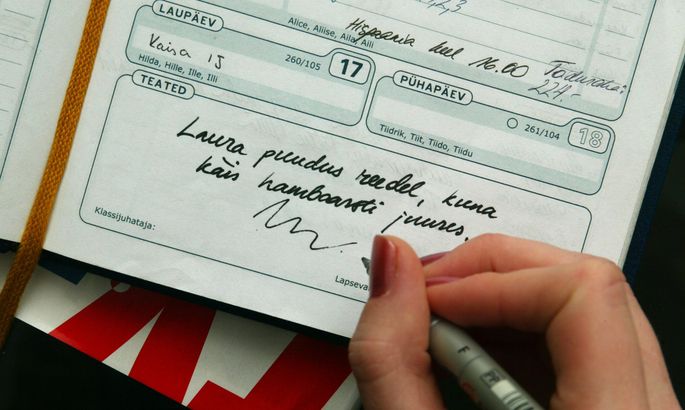 Alice, Aliise, Aila, Aili
Hispaania keel 16.00
224.-
LAUPÄEV
Kaisa 15
260/105
17
Hilda, Hille, Ille, Illi
PÜHAPÄEV
261/104
18
Tiidrik, Tiit, Tiido, Tiidu
TEATED
Laura puudus reedel, kuna
käis hambaarsti juures.
Klassijuhataja:
Lapseva
F